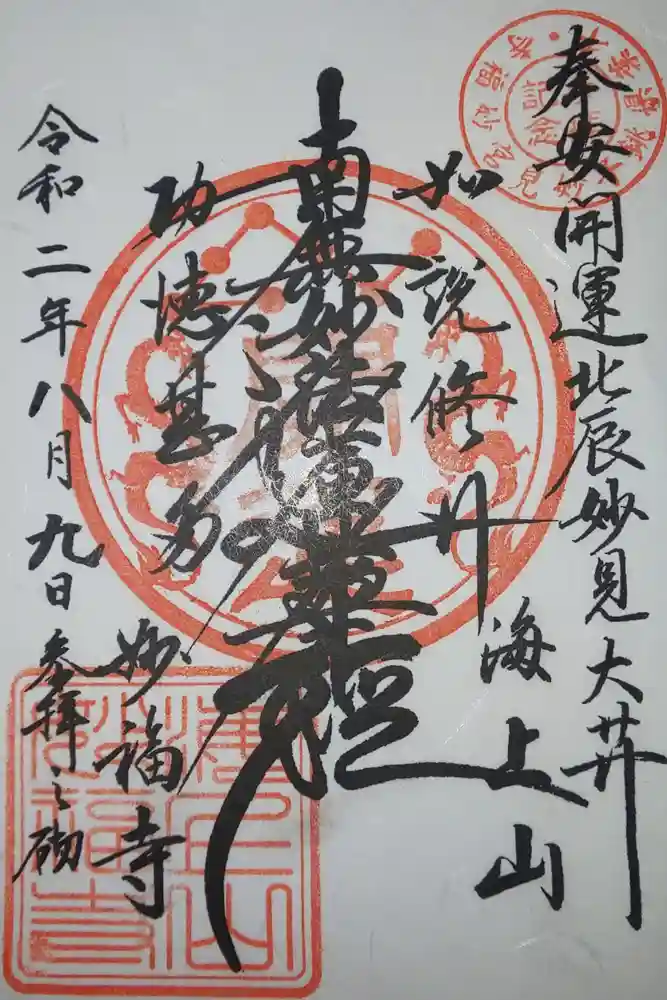 奉安開運北辰妙見大菩
如説修行
海上山
南無妙法蓮華経
功徳甚多
妙福寺
令和二年八月九日参拝之砌
海上山
妙福寺